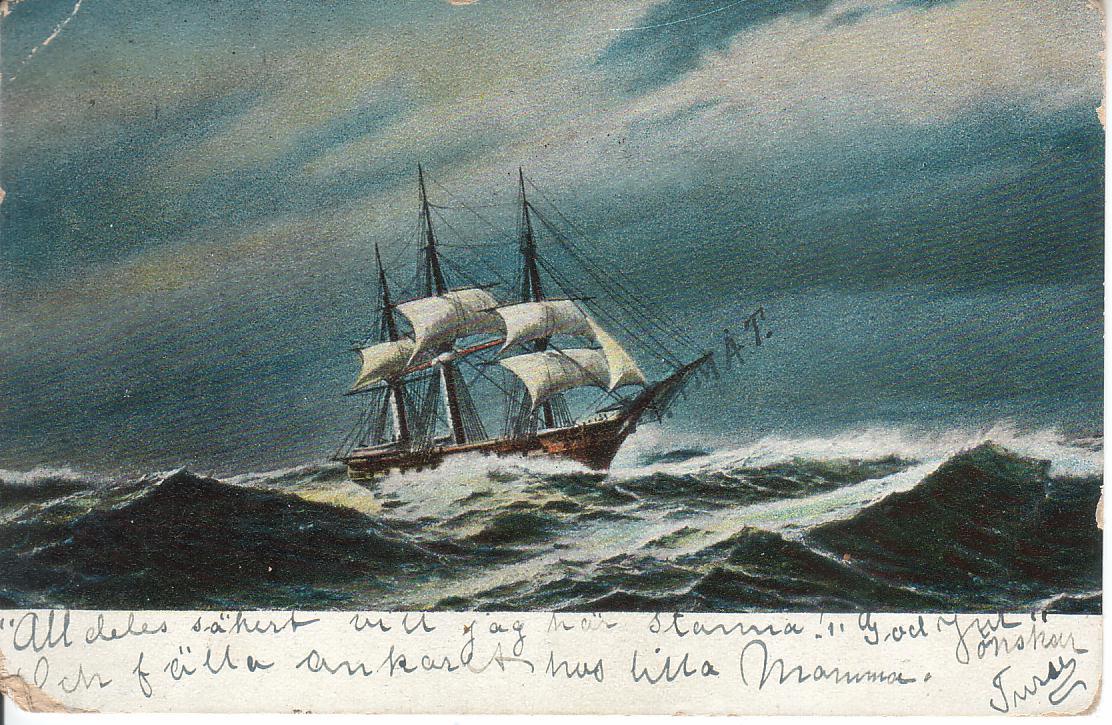 M.A.T.
"Alldeles säkert vill jag här stanna!" "God Jul"
önskar
Och fälla ankaret hos lilla Mamma.